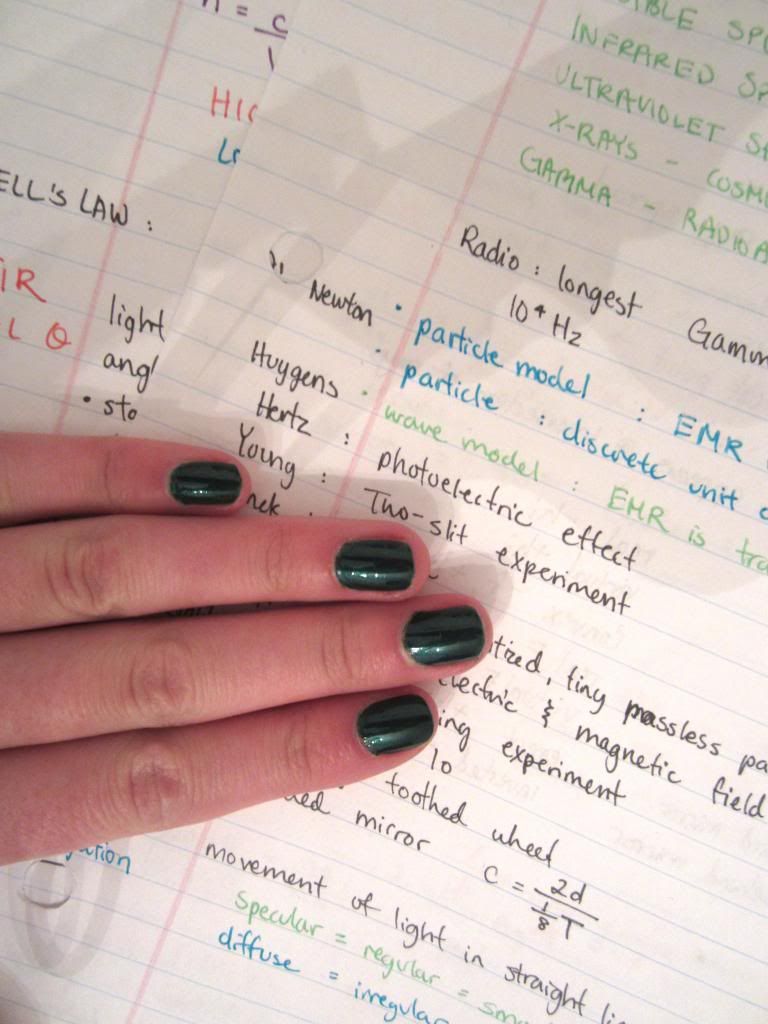 n = c
HIG
ELL'S LAW :
IR
L θ
light
angl
• sto
INFRARED
ULTRAVIOLET
X-RAYS -
GAMMA - RADIOA
Radio : longest Gamm
10⁴ Hz
Newton • particle model : EMR
• particle : discrete unit
Huygens • wave model : EMR is tra
Hertz : photoelectric effect
Young : Two-slit experiment
nck :
tized, tiny massless pa
electric & magnetic field
ing experiment
Io
toothed wheel
mirror
C = 2d
1/8 T
movement of light in straight li
specular = regular = smo
diffuse = irregular